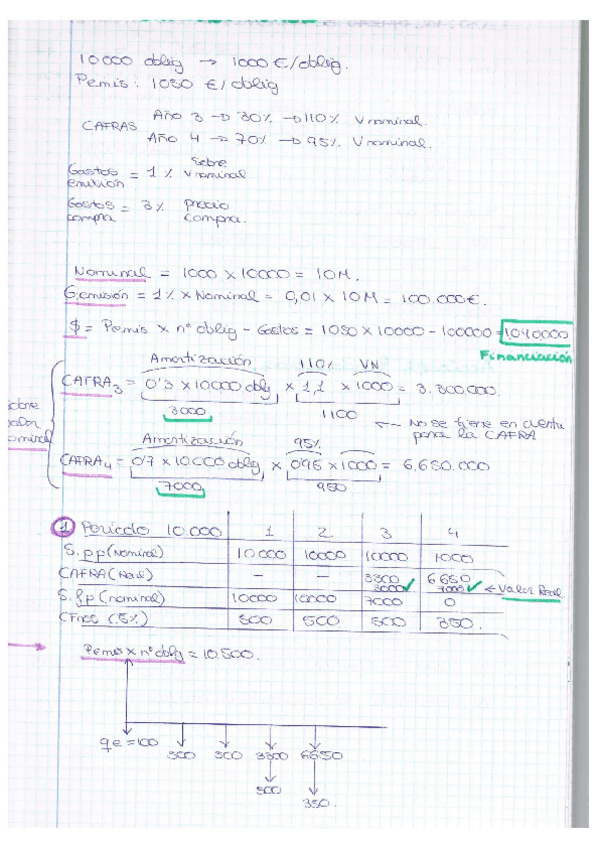 10000 oblig → 1000 €/oblig.
Pemis: 1050 €/oblig
CAFRAS Año 3 → 30% → 110% Vnominal.
Año 4 → 70% → 95% Vnominal.
Gastos emisión = 1% sobre Vnominal
Gastos compra = 3% precio compra.
Nominal = 1000 x 10000 = 10M.
G.emisión = 1% x Nominal = 0,01 x 10M = 100.000€.
$ = Pemis x nº oblig - Gastos = 1050 x 10000 - 100000 = 1040000
Financiación
Amortización 110% VN
CAFRA3 = 0'3 x 10000 oblg x 1,1 x 1000 = 3.300000.
3000 1100
← No se tiene en cuenta para la CAFRA
Amortización 95%
CAFRA4 = 0'7 x 10000 oblg x 0'95 x 1000 = 6.650.000
7000 950
1 Periodo 10.000 1 2 3 4
S.pp (nominal) 10000 10000 10000 1000
CAFRA (Real) - - 3300 6650
3000 ✓ 7000 ✓ ← Valor Real
S.fp (nominal) 10000 10000 7000 0
(5%) 500 500 500 350.
Pemis x nº oblig = 10.500.
ge = 100 500 500 3300 6650
500 350.